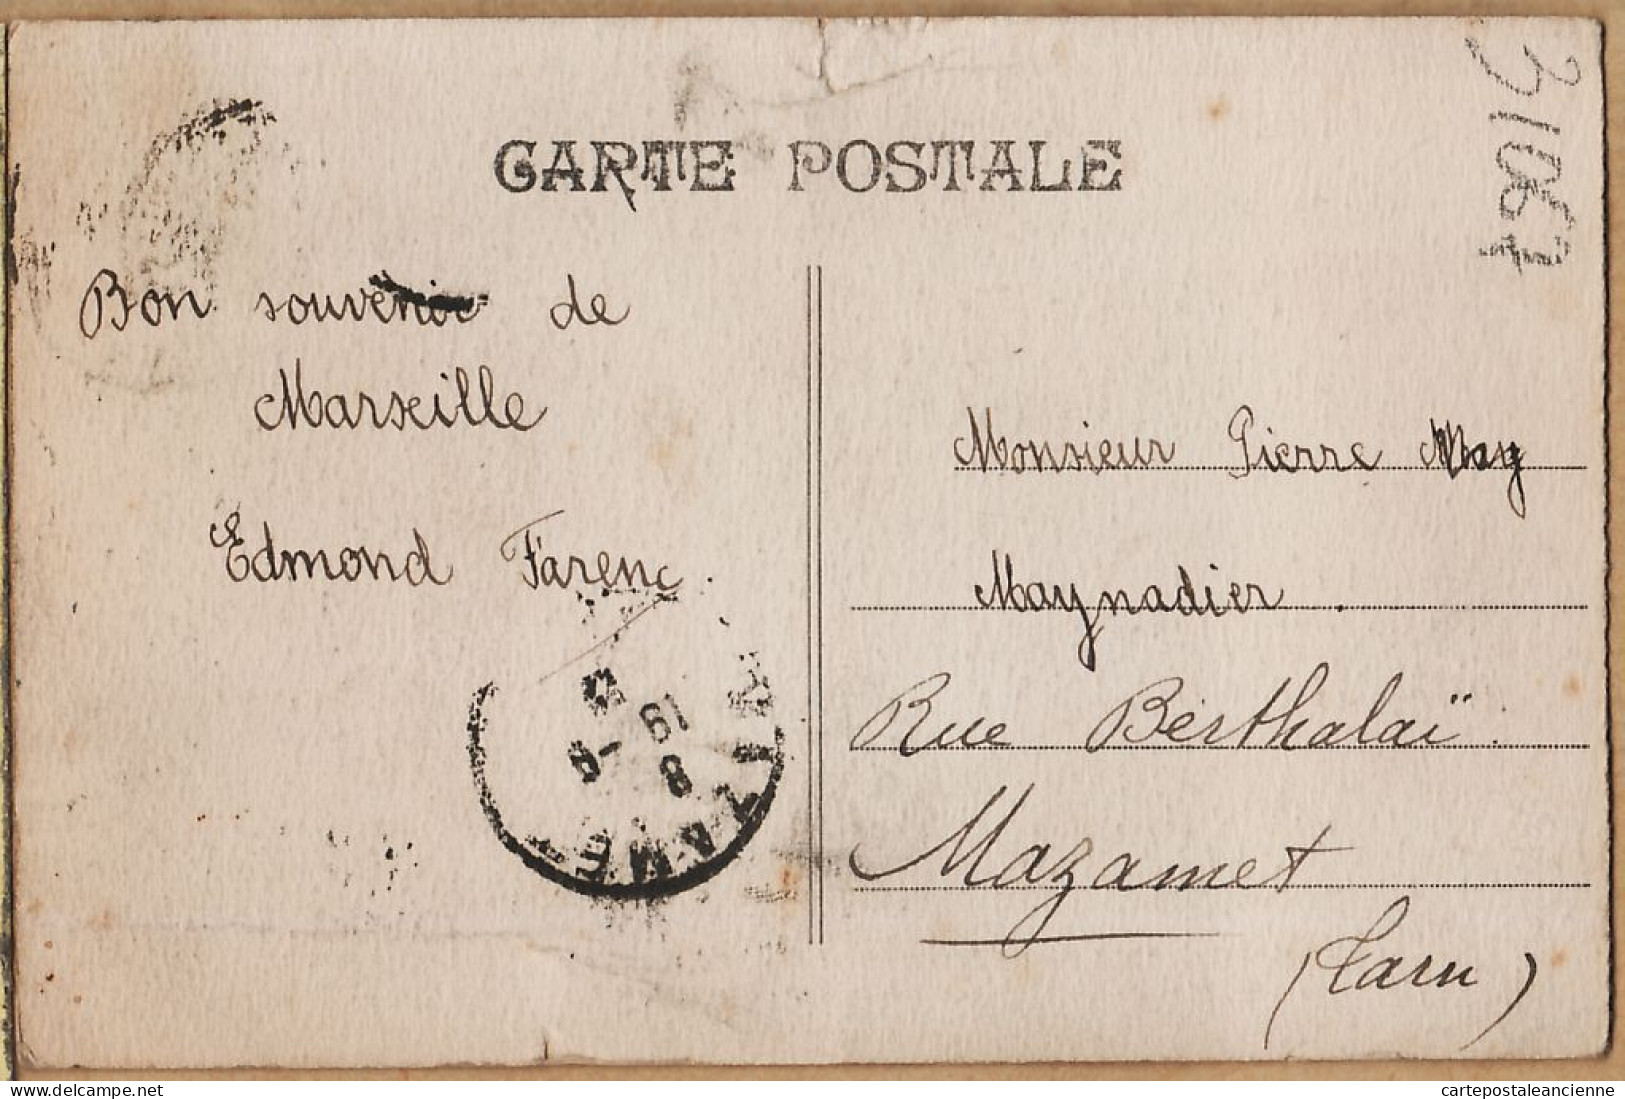 CARTE POSTALE
Bon souvenir de
Marseille
Edmond Farenc.
Monsieur Pierre May
Maynadier.
Rue Berthalaï.
Mazamet
(Tarn)
cartepostaleancienne